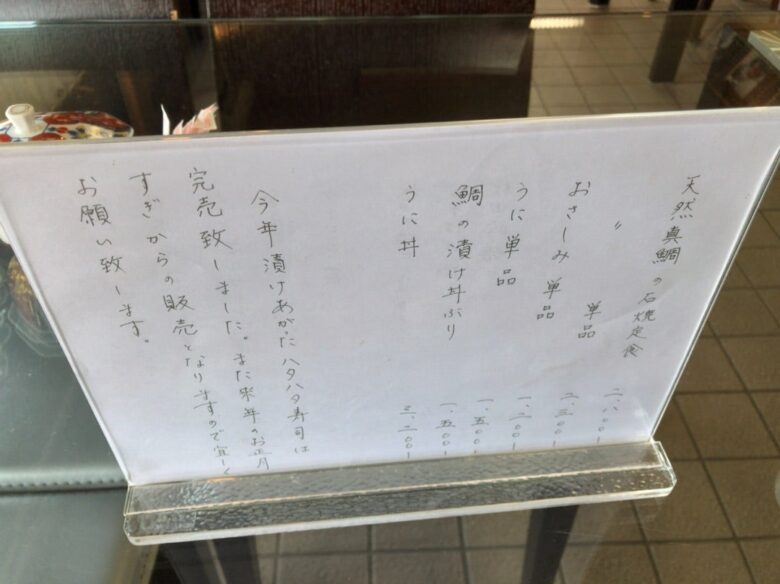 天然真鯛の石焼定食 二、八〇〇-
〃 単品 二、三〇〇-
おさしみ単品 一、二〇〇-
うに単品 一、五〇〇-
鯛の漬け丼ぶり 一、五〇〇-
うに丼 三、二〇〇-
今年漬けあがったハタハタ寿司は
完売致しました。また来年のお正月
すぎからの販売となりますので宜しく
お願い致します。